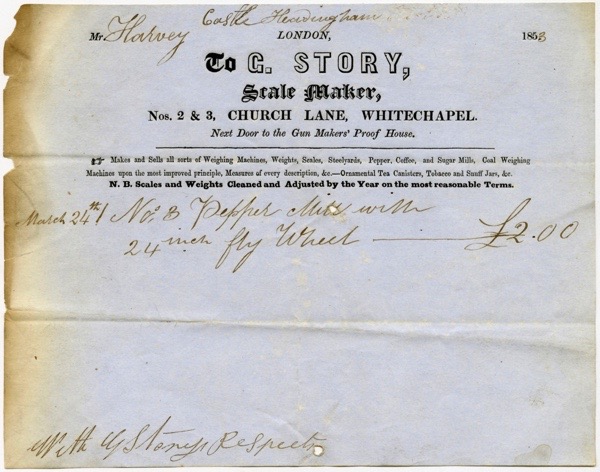 Castle Headingham
Mr. Harvey LONDON, 1853
To G. STORY,
Scale Maker,
Nos. 2 & 3, CHURCH LANE, WHITECHAPEL.
Next Door to the Gun Makers' Proof House.
☞ Makes and Sells all sorts of Weighing Machines, Weights, Scales, Steelyards, Pepper, Coffee, and Sugar Mills, Coal Weighing
Machines upon the most improved principle, Measures of every description, &c.—Ornamental Tea Canisters, Tobacco and Snuff Jars, &c.
N. B. Scales and Weights Cleaned and Adjusted by the Year on the most reasonable Terms.
March 24th / No. 3 Pepper Mill with
24 inch fly Wheel — £2.00
With G Storys Respects